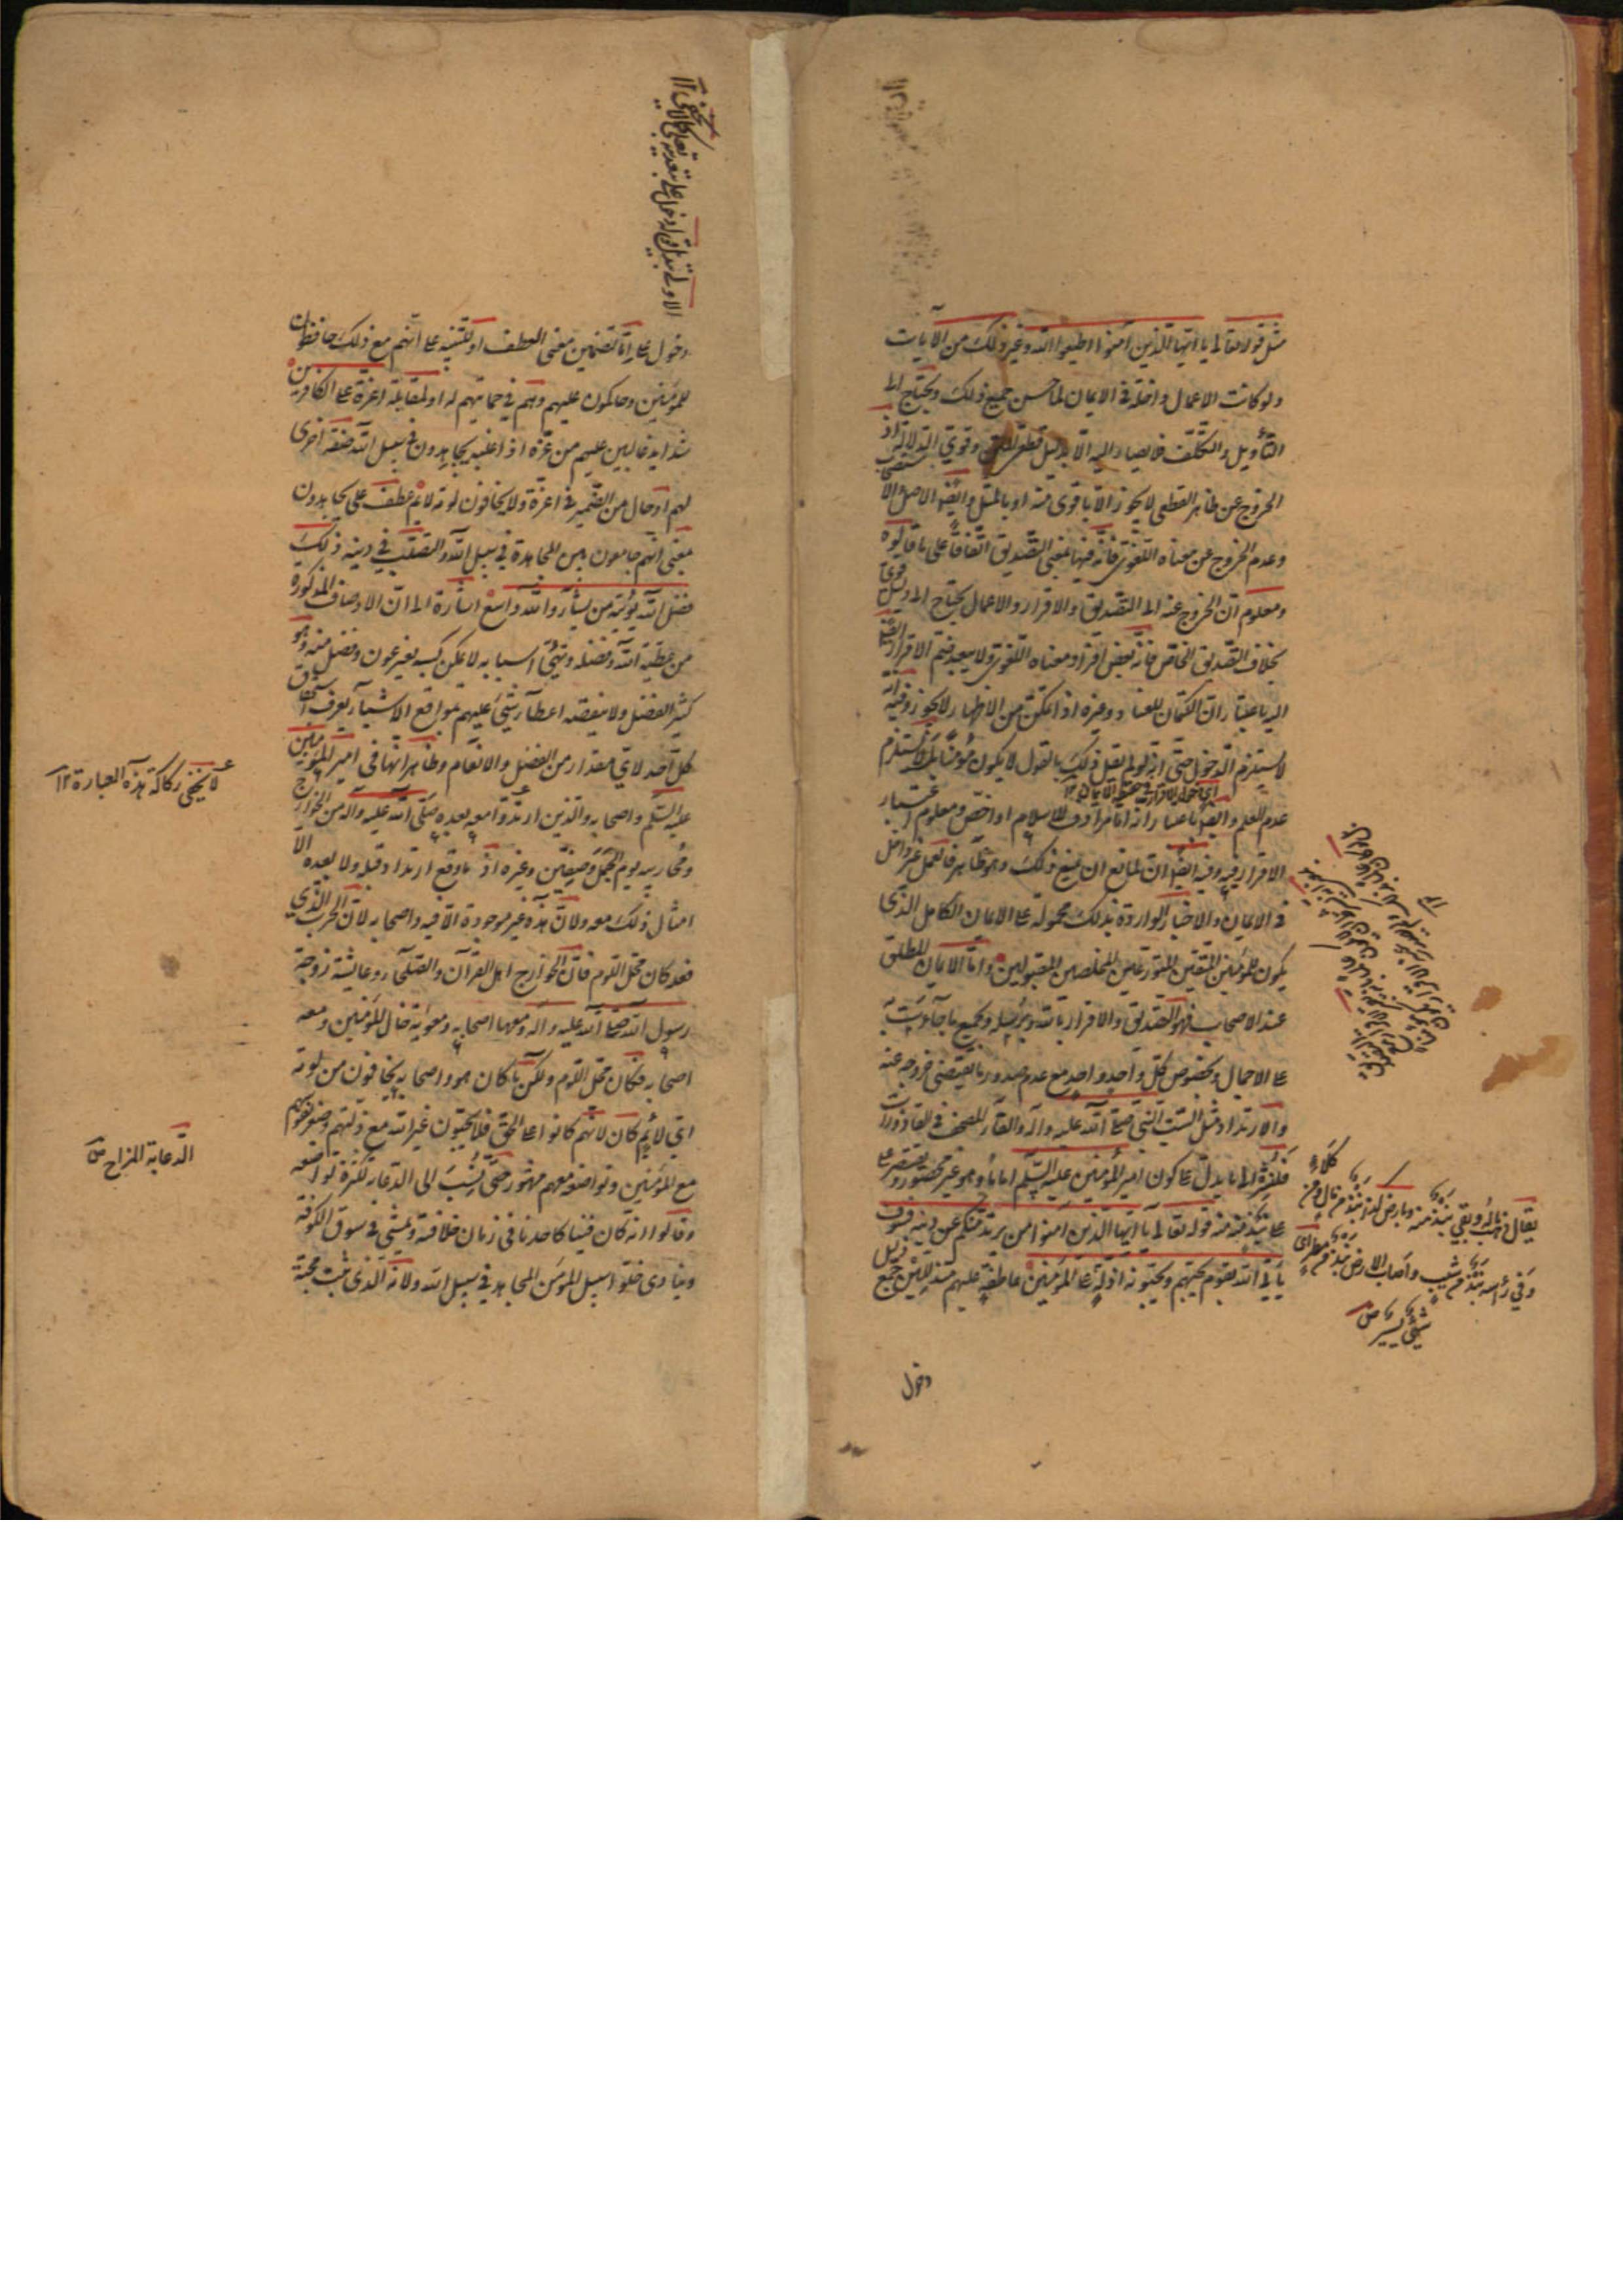 مثل قوله تعالى يا ايها الذين آمنوا اطيعوا الله وغير ذلك من الآيات
ولو كانت الاعمال داخلة في الايمان لما حسن جميع ذلك ويحتاج الى
التأويل والتكلف فلا يصار اليه الا بدليل قطعى وقوي الدلالة اذ
الخروج عن ظاهر القطعى لا يجوز الا باقوى منه او بالمثل وايضا الاصل
وعدم الخروج عن معناه اللغوي فانه فيها بمعنى التصديق اتفاقا على ما قالوه
ومعلوم ان الخروج عنه الى التصديق والاقرار والاعمال يحتاج الى دليل قوي
بخلاف التصديق الخاص فانه بعض افراد معناه اللغوي ولا يبعد ضم الاقرار ايضا
اليه باعتبار ان الكتمان للعناد وغيره اذا تمكن من الاظهار لا يجوز وفيه انه
لا يستلزم الدخول حتى انه لو لم يقل ذلك بالقول لا يكون مؤمنا بل لا يستلزم
اي دخول الاقرار في حقيقة الايمان ١٢
عدم العلم وايضا باعتبار انه اما مرادف للاسلام او اخص ومعلوم اعتبار
الاقرار فيه وفيه ايضا ان لمانع ان يمنع ذلك وهو ظاهر فالعمل غير داخل
في الايمان والاخبار الواردة بذلك محمولة على الايمان الكامل الذي
يكون للمؤمنين المتقين المتورعين المخلصين المقبولين واما الايمان المطلق
عند الاصحاب فهو التصديق والاقرار بالله وبرسله وبجميع ما جاءت به
على الاجمال وبخصوص كل واحد واحد مع عدم صدور ما يقتضى خروجه عنه
والارتداد مثل سب النبي صلى الله عليه وآله والقاء المصحف في القاذورات
فلنشر الى ما يدل على كون امير المؤمنين عليه السلم اماما وهو غير محصور ونقتصر
على نبذ منه منه قوله تعالى يا ايها الذين آمنوا من يرتد منكم عن دينه فسوف
يأتي الله بقوم يحبهم ويحبونه اذلة على المؤمنين عاطفين عليهم متذللين جمع ذليل
يقال ذهب ماله وبقي نبذ منه وبارض كذا نبذ من مال ومن كلاء
وفي رأسه نبذ من شيب واصاب الارض نبذ من مطر اي
شيء يسير ص
دخول
دخول على اما لتضمين معنى العطف او للتنبيه على انهم مع ذلك حافظون
للمؤمنين وحاكمون عليهم وهم في حمايتهم له او لمقابلة اعزة على الكافرين
شدايد غالبين عليهم من عزه اذا غلبه يجاهدون في سبيل الله صفة اخرى
لهم او حال من الضمير في اعزة ولا يخافون لومة لائم عطف على يجاهدون
بمعنى انهم جامعون بين المجاهدة في سبيل الله والتصلب في دينه ذلك
فضل الله يؤتيه من يشاء والله واسع اشارة الى ان الاوصاف المذكورة
من عطية الله وفضله وتهيئ اسبابه لا يمكن كسبه بغير عون وفضل منه وهو
كثير الفضل ولا ينقصه اعطاء شيء عليهم بمواقع الاشياء يعرف استحقاق
كل احد لاي مقدار من الفضل والانعام وظاهر انها في امير المؤمنين
عليه السلم واصحابه والذين ارتدوا معه بعده صلى الله عليه وآله من الخوارج
ومحاربيه يوم الجمل وصفين وغيره اذ ما وقع ارتداد قبله ولا بعده الا
امثال ذلك معه ولان هذه غير موجودة الا فيه واصحابه لان الحرب الذي
فعله كان محل اللوم فان الخوارج اهل القرآن والصلحاء وعايشة زوجة
رسول الله صلى الله عليه وآله ومعها اصحابه ومعوية خال المؤمنين ومعه
اصحابه فكان محل اللوم ولكن ما كان هو واصحابه يخافون من لومة
اي لائم كان لانهم كانوا على الحق فلا يحبون غير الله مع ذلتهم وضعفهم
مع المؤمنين وتواضعه معهم مشهور حتى نسب الى الدعابة لكثرة تواضعه
وقالوا انه كان فينا كاحدنا في زمان خلافته ويمشى في سوق الكوفة
وينادى خلوا سبيل المؤمن المجاهد في سبيل الله ولانه الذي ثبت محبة
لا يخفى ركاكة هذه العبارة ١٢
الدعابة المزاح ص